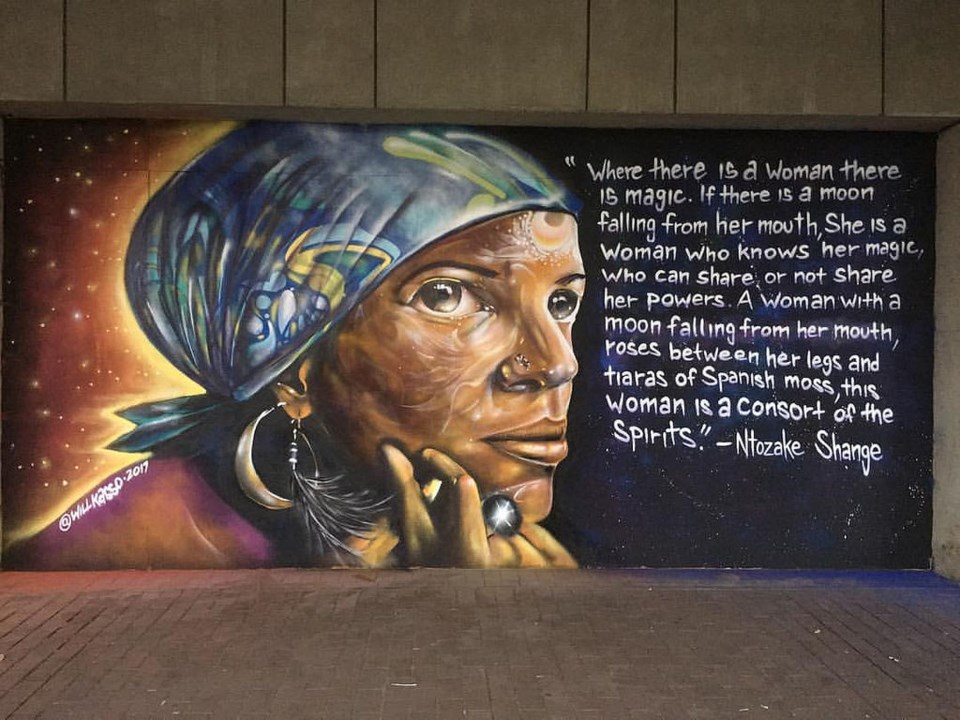 " Where there is a Woman there
is magic. If there is a moon
falling from her mouth, She is a
woman who knows her magic,
who can share or not share
her powers. A woman with a
moon falling from her mouth,
roses between her legs and
tiaras of Spanish moss, this
woman is a consort of the
Spirits." - Ntozake Shange
@WILLKASSO.2017